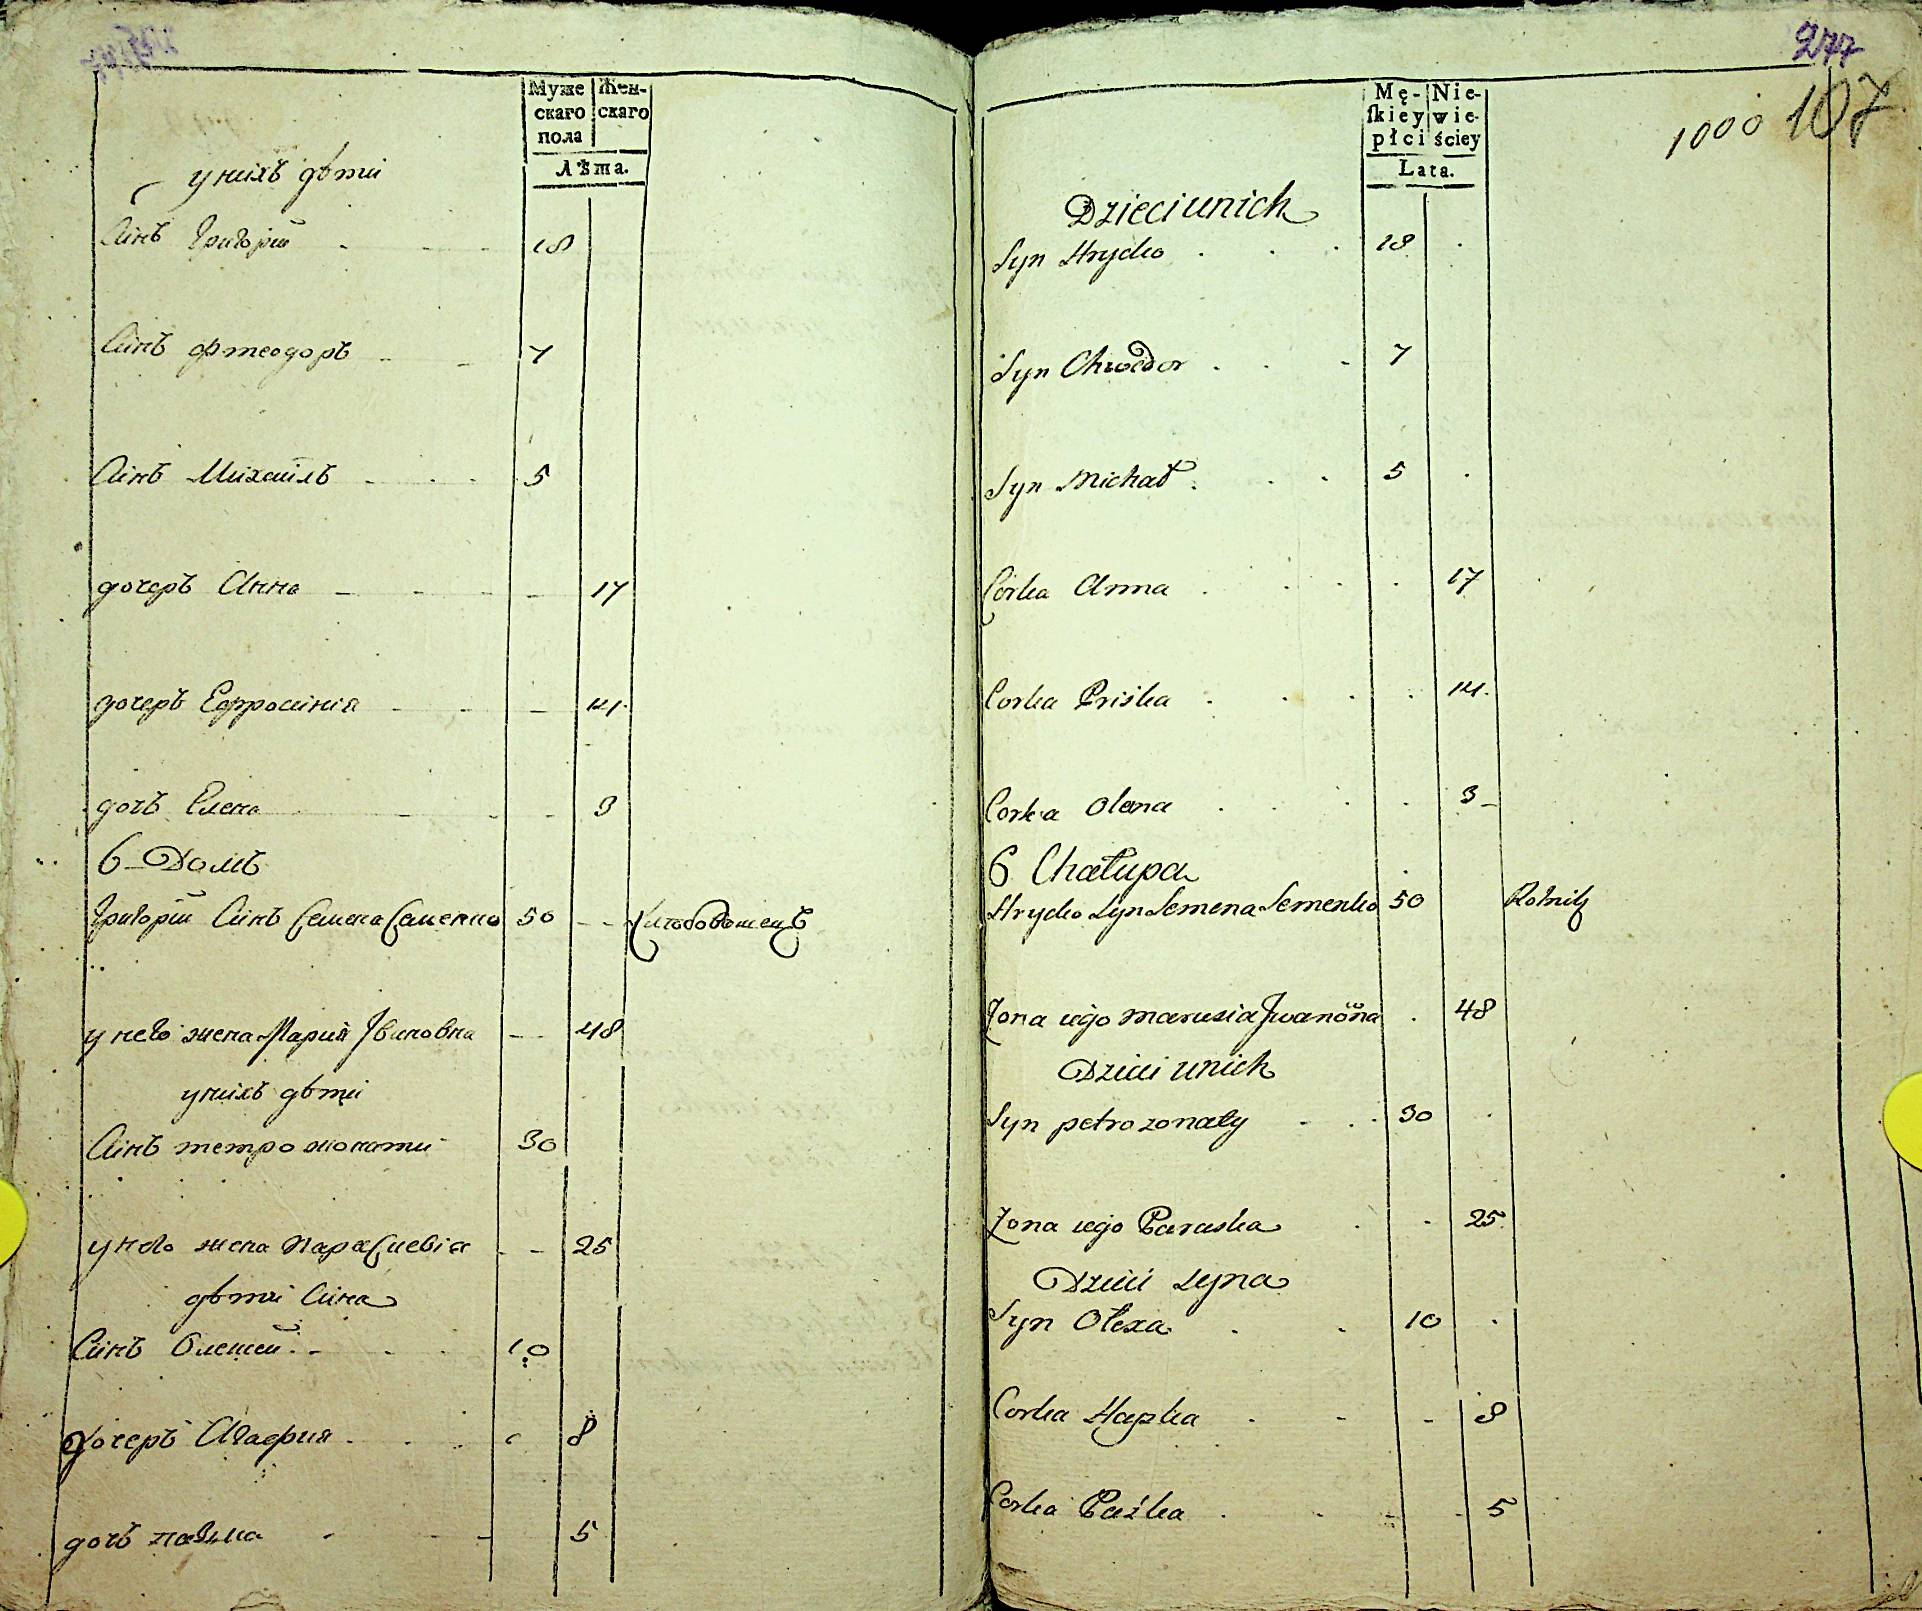 Муже
скаго
пола
Жен-
скаго
Лѣта.
у нихъ дѣти
Синъ Григорій 18
Синъ Фтеодоръ 7
Синъ Михаилъ 5
дочеръ Анна 17
дочеръ Ефросинія 14
дочь Елена 3
6 Домъ
Григорій Синъ Семена Семенко 50
у него жена Мария Ивановна 48
у нихъ дѣти
Синъ петро жонатий 30
у него жена Параскевія 25
дѣти Сина
Синъ Олешей 10
дочеръ Агафия 8
дочь 5
277
1000 107
Mę-
skiey
płci
Nie-
wie-
ściey
Lata.
Dzieci u nich
Syn Hrycko 18
Syn Chwedor 7
Syn Michał 5
Corka Anna 17
Corka Priśka 14
Corka Olena 3
6 Chałupa
Hrycko Syn Semena Semenko 50 Rolnik
Zona iego Marusia Iwanowna 48
Dzieci u nich
Syn petro zonaty 30
Zona iego Paraska 25
Dzieci Syna
Syn Olexa 10
Corka Hapka 8
Corka Paźka 5